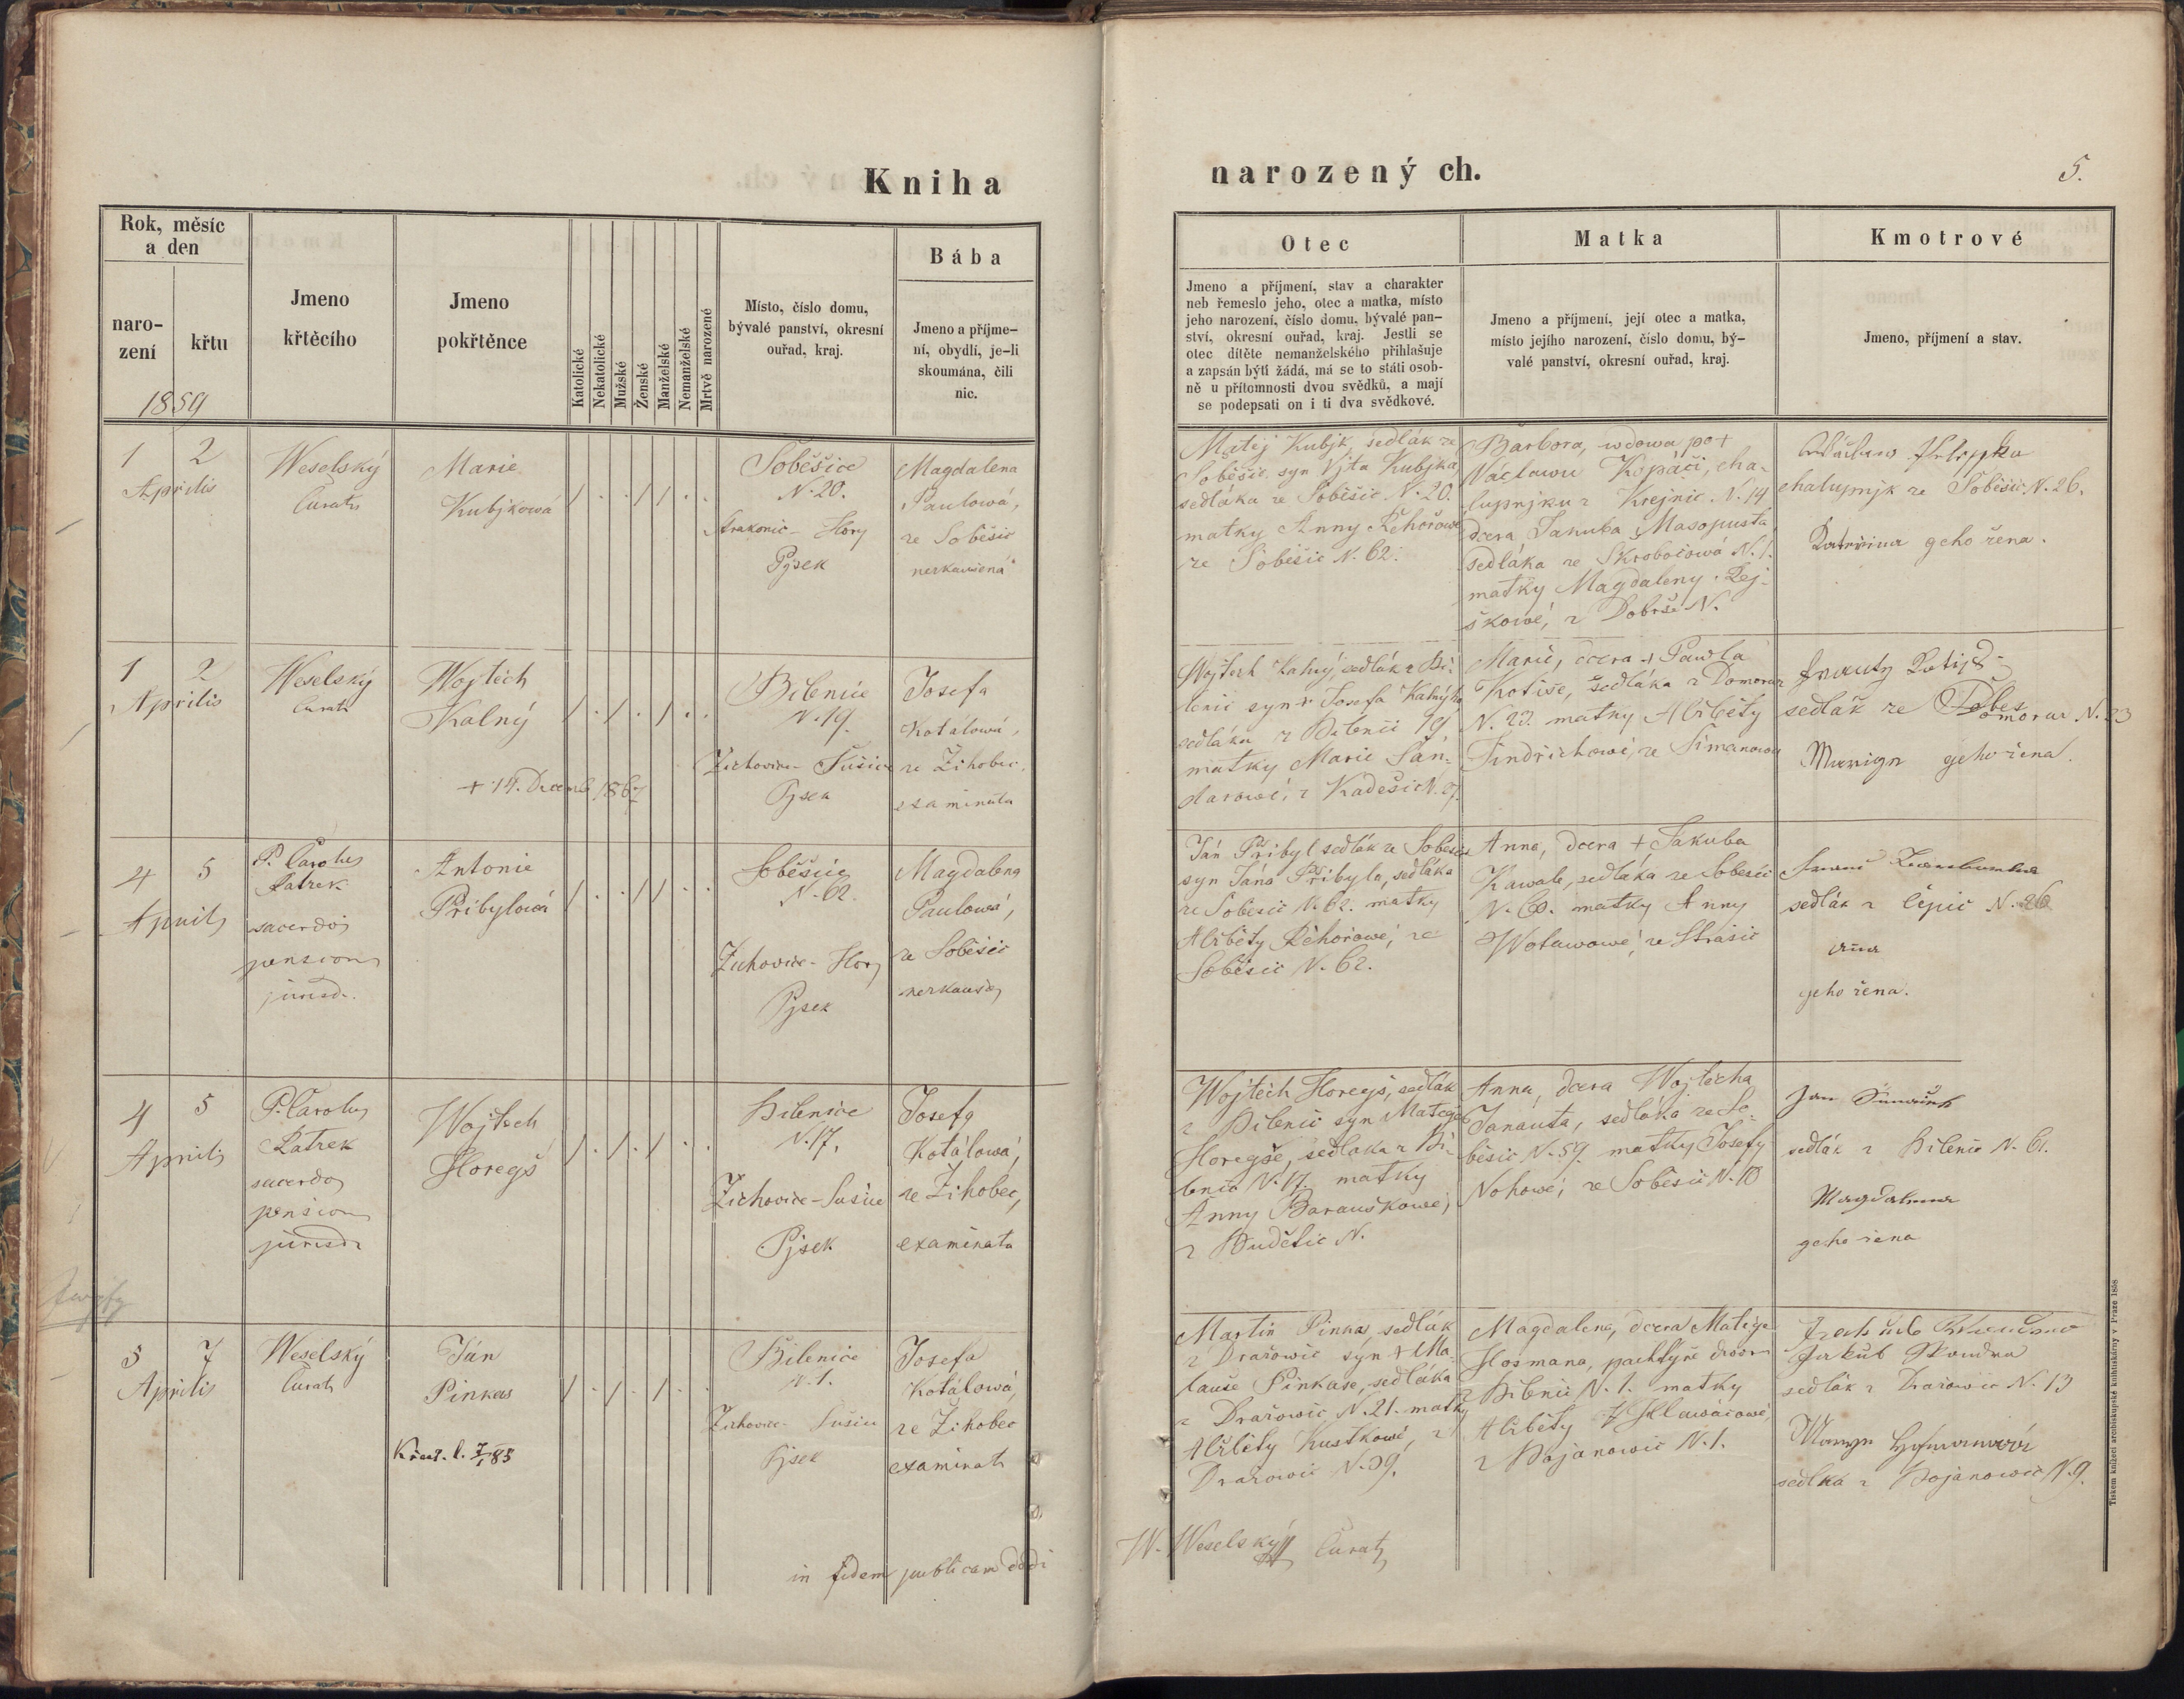 Kniha
Rok, měsíc
a den
naro-
zení
křtu
1859
Jmeno
křtěcího
Jmeno
pokřtěnce
Katolické
Nekatolické
Mužské
Ženské
Manželské
Nemanželské
Mrtvě narozené
Místo, číslo domu,
bývalé panství, okresní
ouřad, kraj.
Bába
Jmeno a příjme-
ní, obydlí, je-li
skoumána, čili
nic.
1 2
Aprilis
Weselský
Curat
Marie
Kubjkowá
Soběšice
N. 20.
Strakonic - Hory
Pjsek
Magdalena
Paulowá,
ze Soběšic
nezkaušená
1 2
Aprilis
Weselský
Curat
Wojtěch
Kalný
+ 14. Decemb 1867
Bílenice
N. 19.
Žichovice - Sušice
Pjsek
Josefa
Kotálowá,
ze Žihobec
examinata
4 5
Aprilis
P. Carolus
Patrek
sacerdos
pension
jurisd.
Antonie
Přibylowá
Soběšice
N. 62.
Žichovice - Hory
Pjsek
Magdalena
Paulowá,
ze Soběšic
nezkauš
4 5
Aprilis
P. Carolus
Patrek
sacerdos
pension
jurisd
Wojtech
Horegš
Bilenice
N. 17.
Žichovice - Sušice
Pjsek
Josefa
Kotálowá,
ze Žihobec,
examinata
5 7
Aprilis
Weselský
Curat
Ján
Pinkas
Bílenice
N. 1.
Žichovice - Sušice
Pjsek
Josefa
Kotálowá,
ze Žihobec
examinata
in fidem publicam dedi
narozený ch.
5.
Otec
Jmeno a příjmení, stav a charakter
neb řemeslo jeho, otec a matka, místo
jeho narození, číslo domu, bývalé pan-
ství, okresní ouřad, kraj. Jestli se
otec dítěte nemanželského přihlašuje
a zapsán býti žádá, má se to státi osob-
ně u přítomnosti dvou svědků, a mají
se podepsati on i ti dva svědkové.
Matka
Jmeno a příjmení, její otec a matka,
místo jejího narození, číslo domu, bý-
valé panství, okresní ouřad, kraj.
Kmotrové
Jmeno, příjmení a stav.
Matěj Kubjk, sedlák ze
Soběšic syn Vjta Kubjka,
sedláka ze Soběšic N. 20.
matky Anny Řehořowé
ze Soběšic N. 62.
Barbora, wdowa po +
Václawu Kopáči, cha-
lupnjku z Krejnic N. 14
dcera Jakuba Masopusta
sedláka ze Skrobočowá N. 1.
matky Magdaleny Rej-
škowé, z Dobrše N.
chalupnjk ze Soběšic N. 26.
Kateřina geho žena.
Wojtech Kalný, sedlák z Bí-
lenic syn + Josefa Kalnýho
sedláka z Bilenic 19
matky Marie Šan-
darowé, z Kadešic N. 27.
Marie, dcera + Pawla
Kotiše, sedláka z Domoraz
N. 23. matky Alžběty
Jindřichowé, ze Šimanowa
sedlák ze Domoraz N. 23
geho žena.
Ján Přibyl sedlák ze Soběšic
syn Jána Přibyla, sedláka
ze Soběšic N. 62. matky
Alžběty Řehořowé, ze
Soběšic N. 62.
Anna, dcera + Jakuba
Kawale, sedláka ze Soběšic
N. 60. matky Anny
Wotawowé, ze Strašic
sedlák z Čepic N. 26
Aña
geho žena.
Wojtěch Horegš, sedlák
z Bilenic syn Matěge
Horegše, sedláka z Bi-
lenic N. 17. matky
Anny Barauškowé,
z Budětic N.
Anna, dcera Wojtěcha
Janauta, sedláka ze So-
běšic N. 59. matky Josefy
Nohowé, ze Soběšic N. 10
sedlák z Bilenic N. 61.
Magdalena
geho žena
Martin Pinkas, sedlák
z Dražowic syn + Ma-
tauše Pinkase, sedláka
z Dražowic N. 21. matky
Alžběty Kustkowé, z
Dražowic N. 39.
Magdalena, dcera Matěge
Hosmana, pachtýře dwora
z Bilenic N. 1. matky
Alžběty Hlawáčowé,
z Bojanowic N. 1.
Jakub Skaudra
sedlák z Dražowic N. 13
sedlka z Bojanowic N. 9.
W. Weselský Curat
Tiskem knížecí arcibiskupské knihtiskárny v Praze 1858